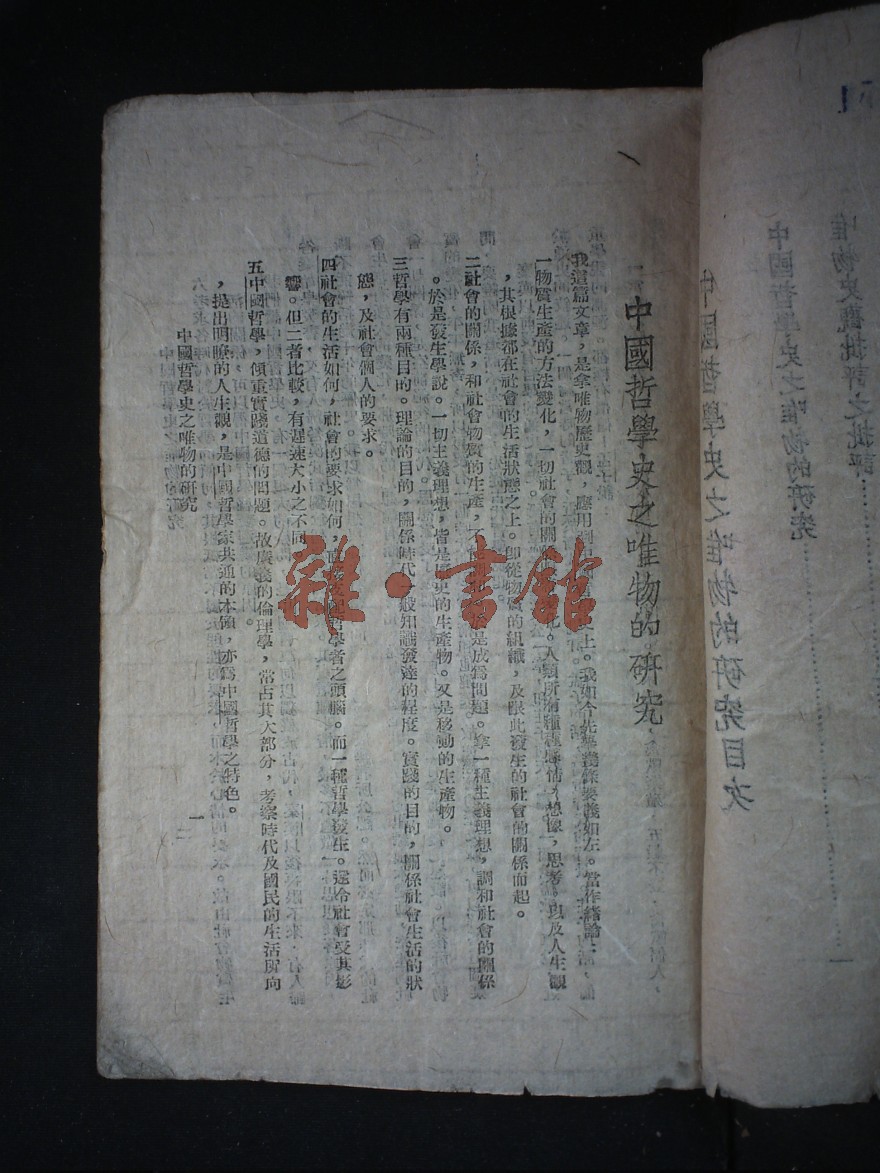 中國哲學史之唯物的研究
我這篇文章，是拿唯物歷史觀，應用到中國哲學史上。我如今先舉幾條要義如左。當作緒論：
一物質生產的方法變化，一切社會的關係變化。人類所有種種感情，想像，思考。以及人生觀
，其根據都在社會的生活狀態之上。即從物質的組織，及跟此發生的社會的關係而起。
二社會的關係，和社會物質的生產，不是成爲問題。拿一種主義理想，調和社會的關係
。於是發生學說。一切主義理想，皆是歷史的生產物。又是移動的生產物。
三哲學有兩種目的。理論的目的，關係時代一般知識發達的程度。實踐的目的，關係社會生活的狀
態，及社會個人的要求。
四社會的生活如何，社會的要求如何，哲學者之頭腦。而一種哲學發生。還令社會受其影
響。但二者比較，有遲速大小之不同。
五中國哲學，傾重實踐道德的問題。故廣義的倫理學，常占其大部分，考察時代及國民的生活所向
，提出明瞭的人生觀，是中國哲學家共通的本領，亦爲中國哲學之特色。
中國哲學史之唯物的研究
一
雜·書館
中國哲學史之唯物的研究目次
中國哲學史之唯物的研究
唯物史觀批評之批評
一